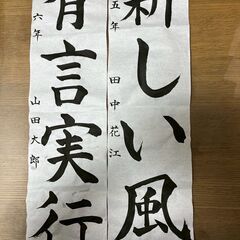 新しい風
五年 田中花江
有言実行
六年 山田大郎